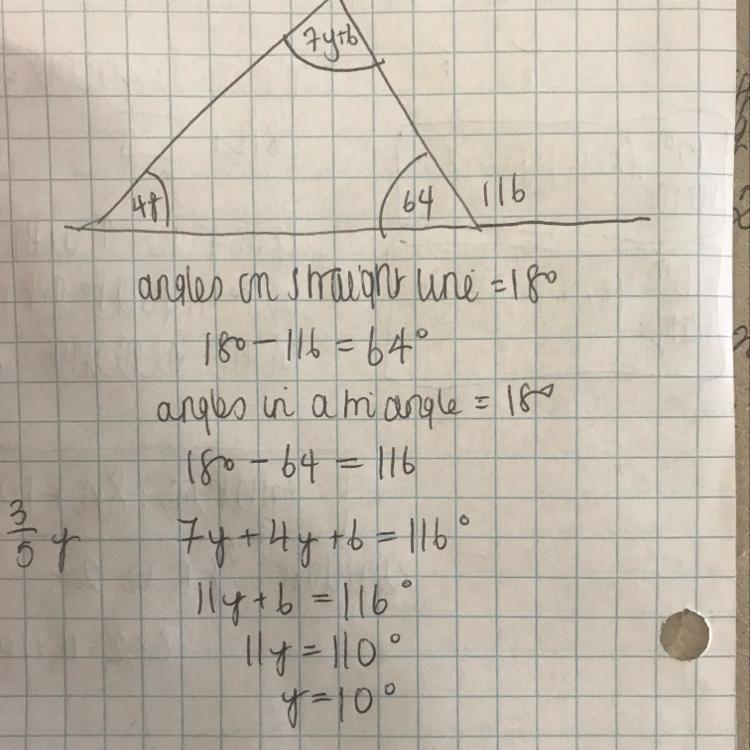 7y+6
4y
64
116
angles on straight line = 180
180 - 116 = 64°
angles in a triangle = 180
180 - 64 = 116
3/5 y
7y + 4y + 6 = 116°
11y + 6 = 116°
11y = 110°
y = 10°